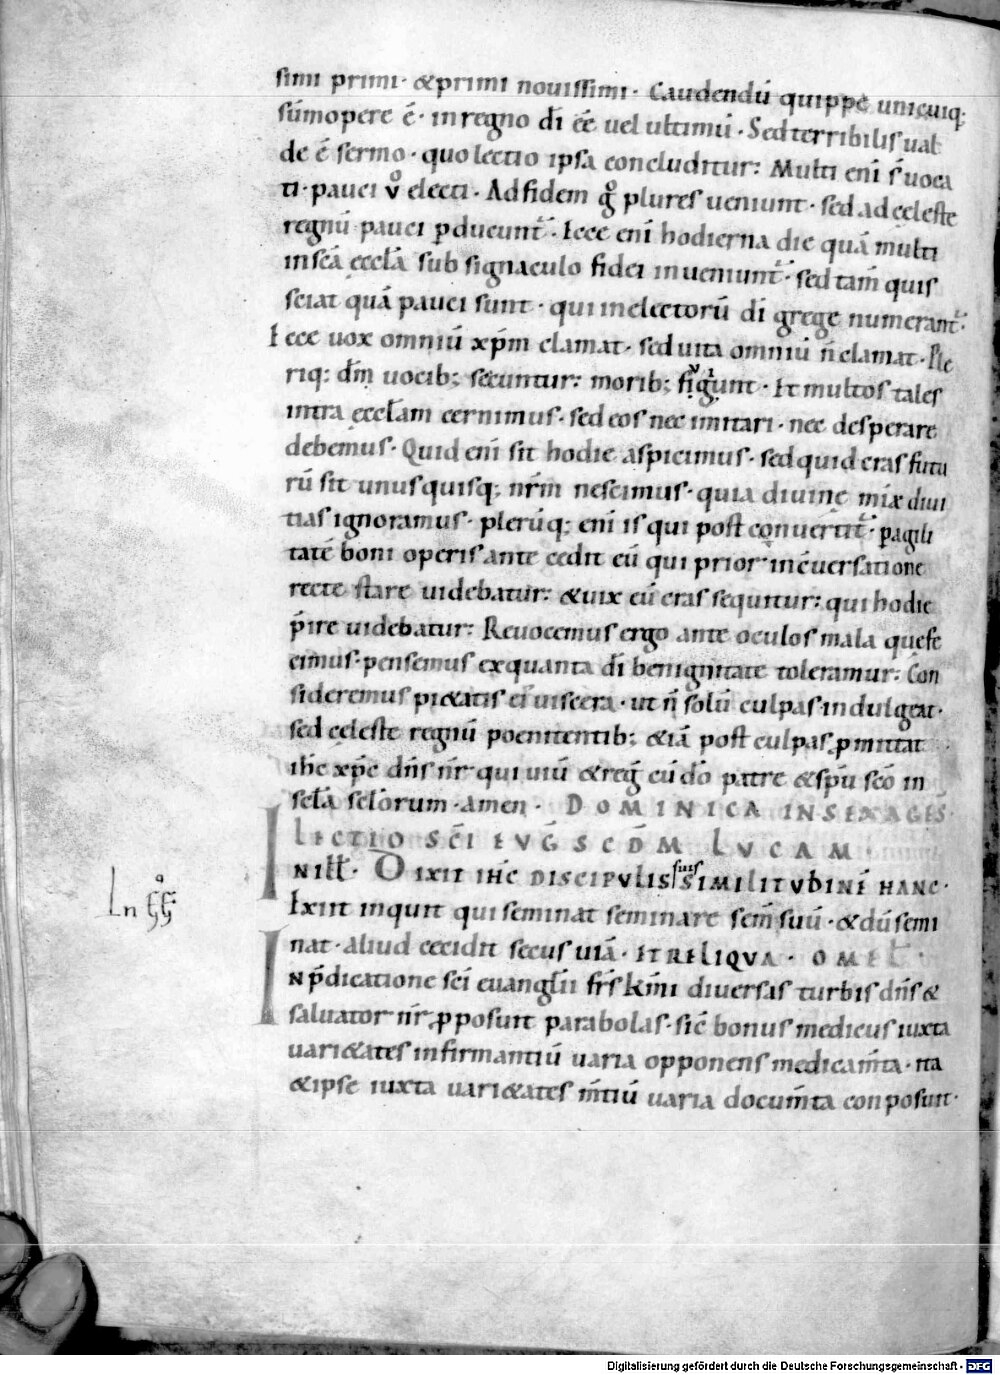 simi primi · & primi nouissimi · Gaudendū quippe unicuiq;
sūmopere ē · in regno dī ēē uel ultimū · Sed terribilis ual
de ē sermo · quo lectio ipsa concluditur: Multi enī s̄ uoca
ti · pauci v̊ electi · Ad fidem g̊ plures ueniunt · sed ad cęleste
regnū pauci ꝑducunt᷑ · Ecce enī hodierna die quā multi
in scā ęccl̄a sub signaculo fidei inueniunt᷑ · sed tam̄ quis
sciat quā pauci sunt · qui in electorū dī grege numerant᷑ ·
Ecce uox omniū xp̄m clamat · sed uita omniū n̄ clamat · Ple
riq: dm̄ uocib; secuntur: morib; fugiunt · Et multos tales
intra ęccl̄am cernimus · sed eos nec imitari · nec desperare
debemus · Quid enī sit hodie aspicimus · sed quid cras futu
rū sit unusquisq; nr̄m nescimus · quia diuinę mīę diui
tias ignoramus · plerūq; enī is qui post conuertit᷑ · ꝑ agili
tatē boni operis antecedit eū qui prior in cūersatione
recte stare uidebatur: & uix eū cras sequitur: qui hodie
p̄ire uidebatur: Reuocemus ergo ante oculos mala quę fe
cimus · pensemus ex quanta dī benignitate toleramur: Con
sideremus pi&atis ei uiscera · ut n̄ solū culpas indulgeat ·
sed cęleste regnū poenitentib; &iā post culpas ꝓmittat
ih̄c xp̄c dn̄s nr̄ qui uiū & reḡ cū dō patre & spū scō in
sc̄la sc̄lorum · amen · DOMINICA IN SEXAGES̄
LECTIO SC̄I EVḠ SCDM̄ LVCAM
IN ILL̄ · DIXIT IHC̄ DISCIPVLIS suis SIMILITVDINĒ HANC ·
Exiit inquit qui seminat seminare sem̄ suū · & dū semi
nat · aliud cecidit secus uiā · ET RELIQVA · OMEL̄ ·
In p̄dicatione sci euanglii frs̄ km̄i diuersas turbis dn̄s &
saluator nr̄ ꝓposuit parabolas · sic̄ bonus medicus iuxta
uari&ates infirmantiū uaria opponens medicam̄ta · ita
& ipse iuxta uari&ates m̄tiū uaria docum̄ta conposuit ·